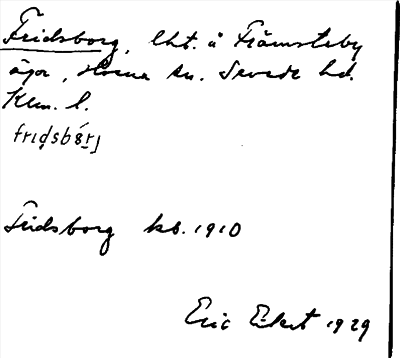 Fridsborg, lht. å Främsteby
ägor, Horna sn. Sevede hd.
Klm. l.
Fridsborg kb. 1910
Eric Ekert 1929